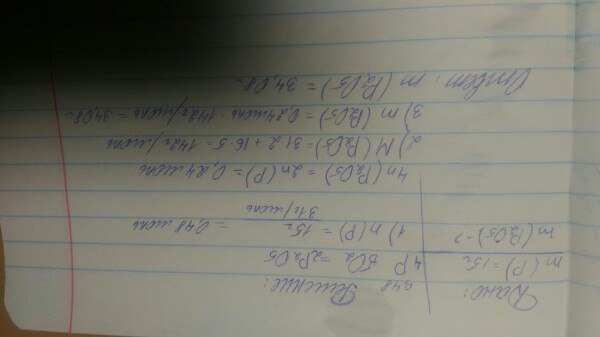 Дано:
m(P)=15г
m(P2O5)-?
Решение:
0,48
4P 5O2 = 2P2O5
1) n(P) = 15г / 31г/моль = 0,48 моль
4n(P2O5) = 2n(P) = 0,24 моль
2) M(P2O5) = 31·2 + 16·5 = 142г/моль
3) m(P2O5) = 0,24моль · 142г/моль = 34,08г
Ответ: m(P2O5) = 34,08г